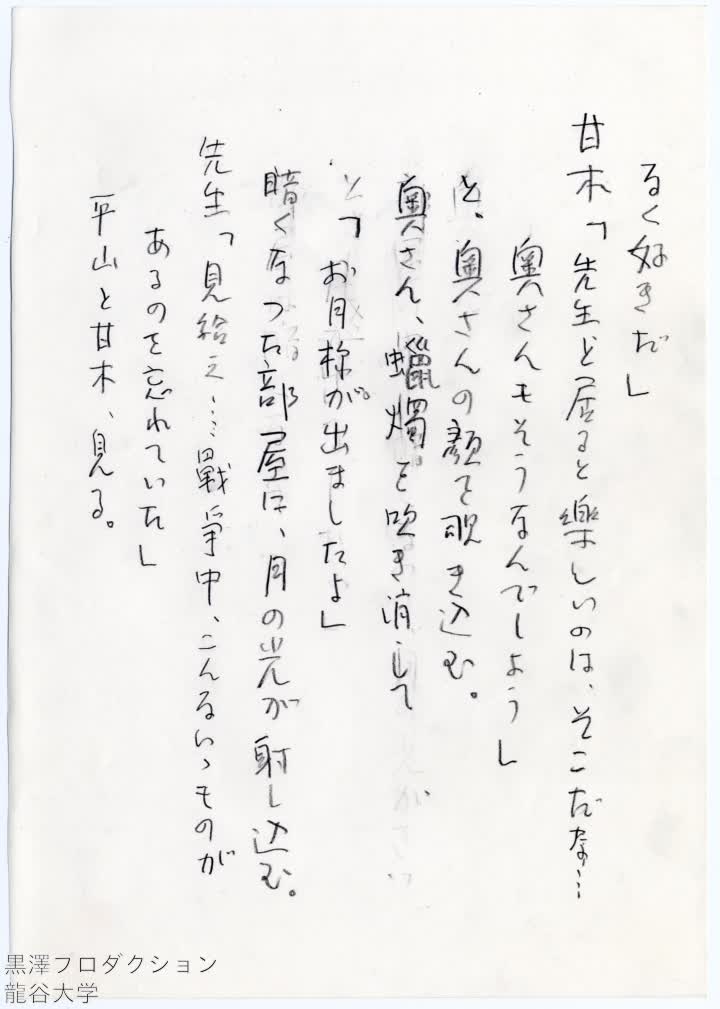 るく好きだ」
甘木「先生と居ると楽しいのは、そこだな…
奥さんもそうなんでしよう」
と、奥さんの顔を覗き込む。
奥さん、蠟燭を吹き消して
と「お月様が出ましたよ」
暗くなつた部屋は、月の光が射し込む。
先生「見給え……戰爭中、こんないゝものが
あるのを忘れていた」
平山と甘木、見る。
黒澤プロダクション
龍谷大学